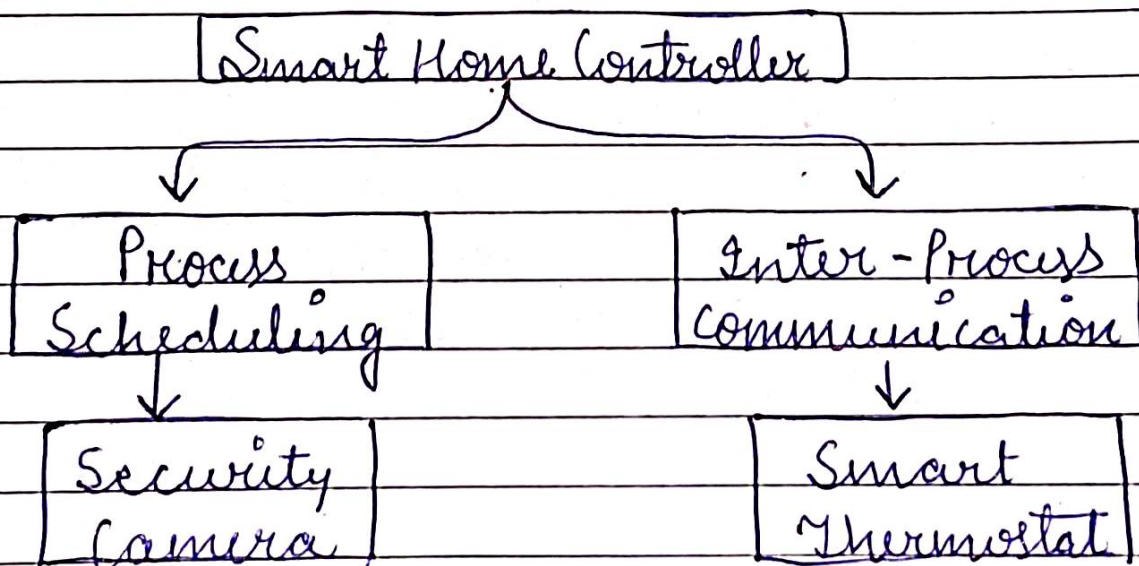 Smart Home Controller
Process
Scheduling
Inter-Process
Communication
Security
Camera
Smart
Thermostat